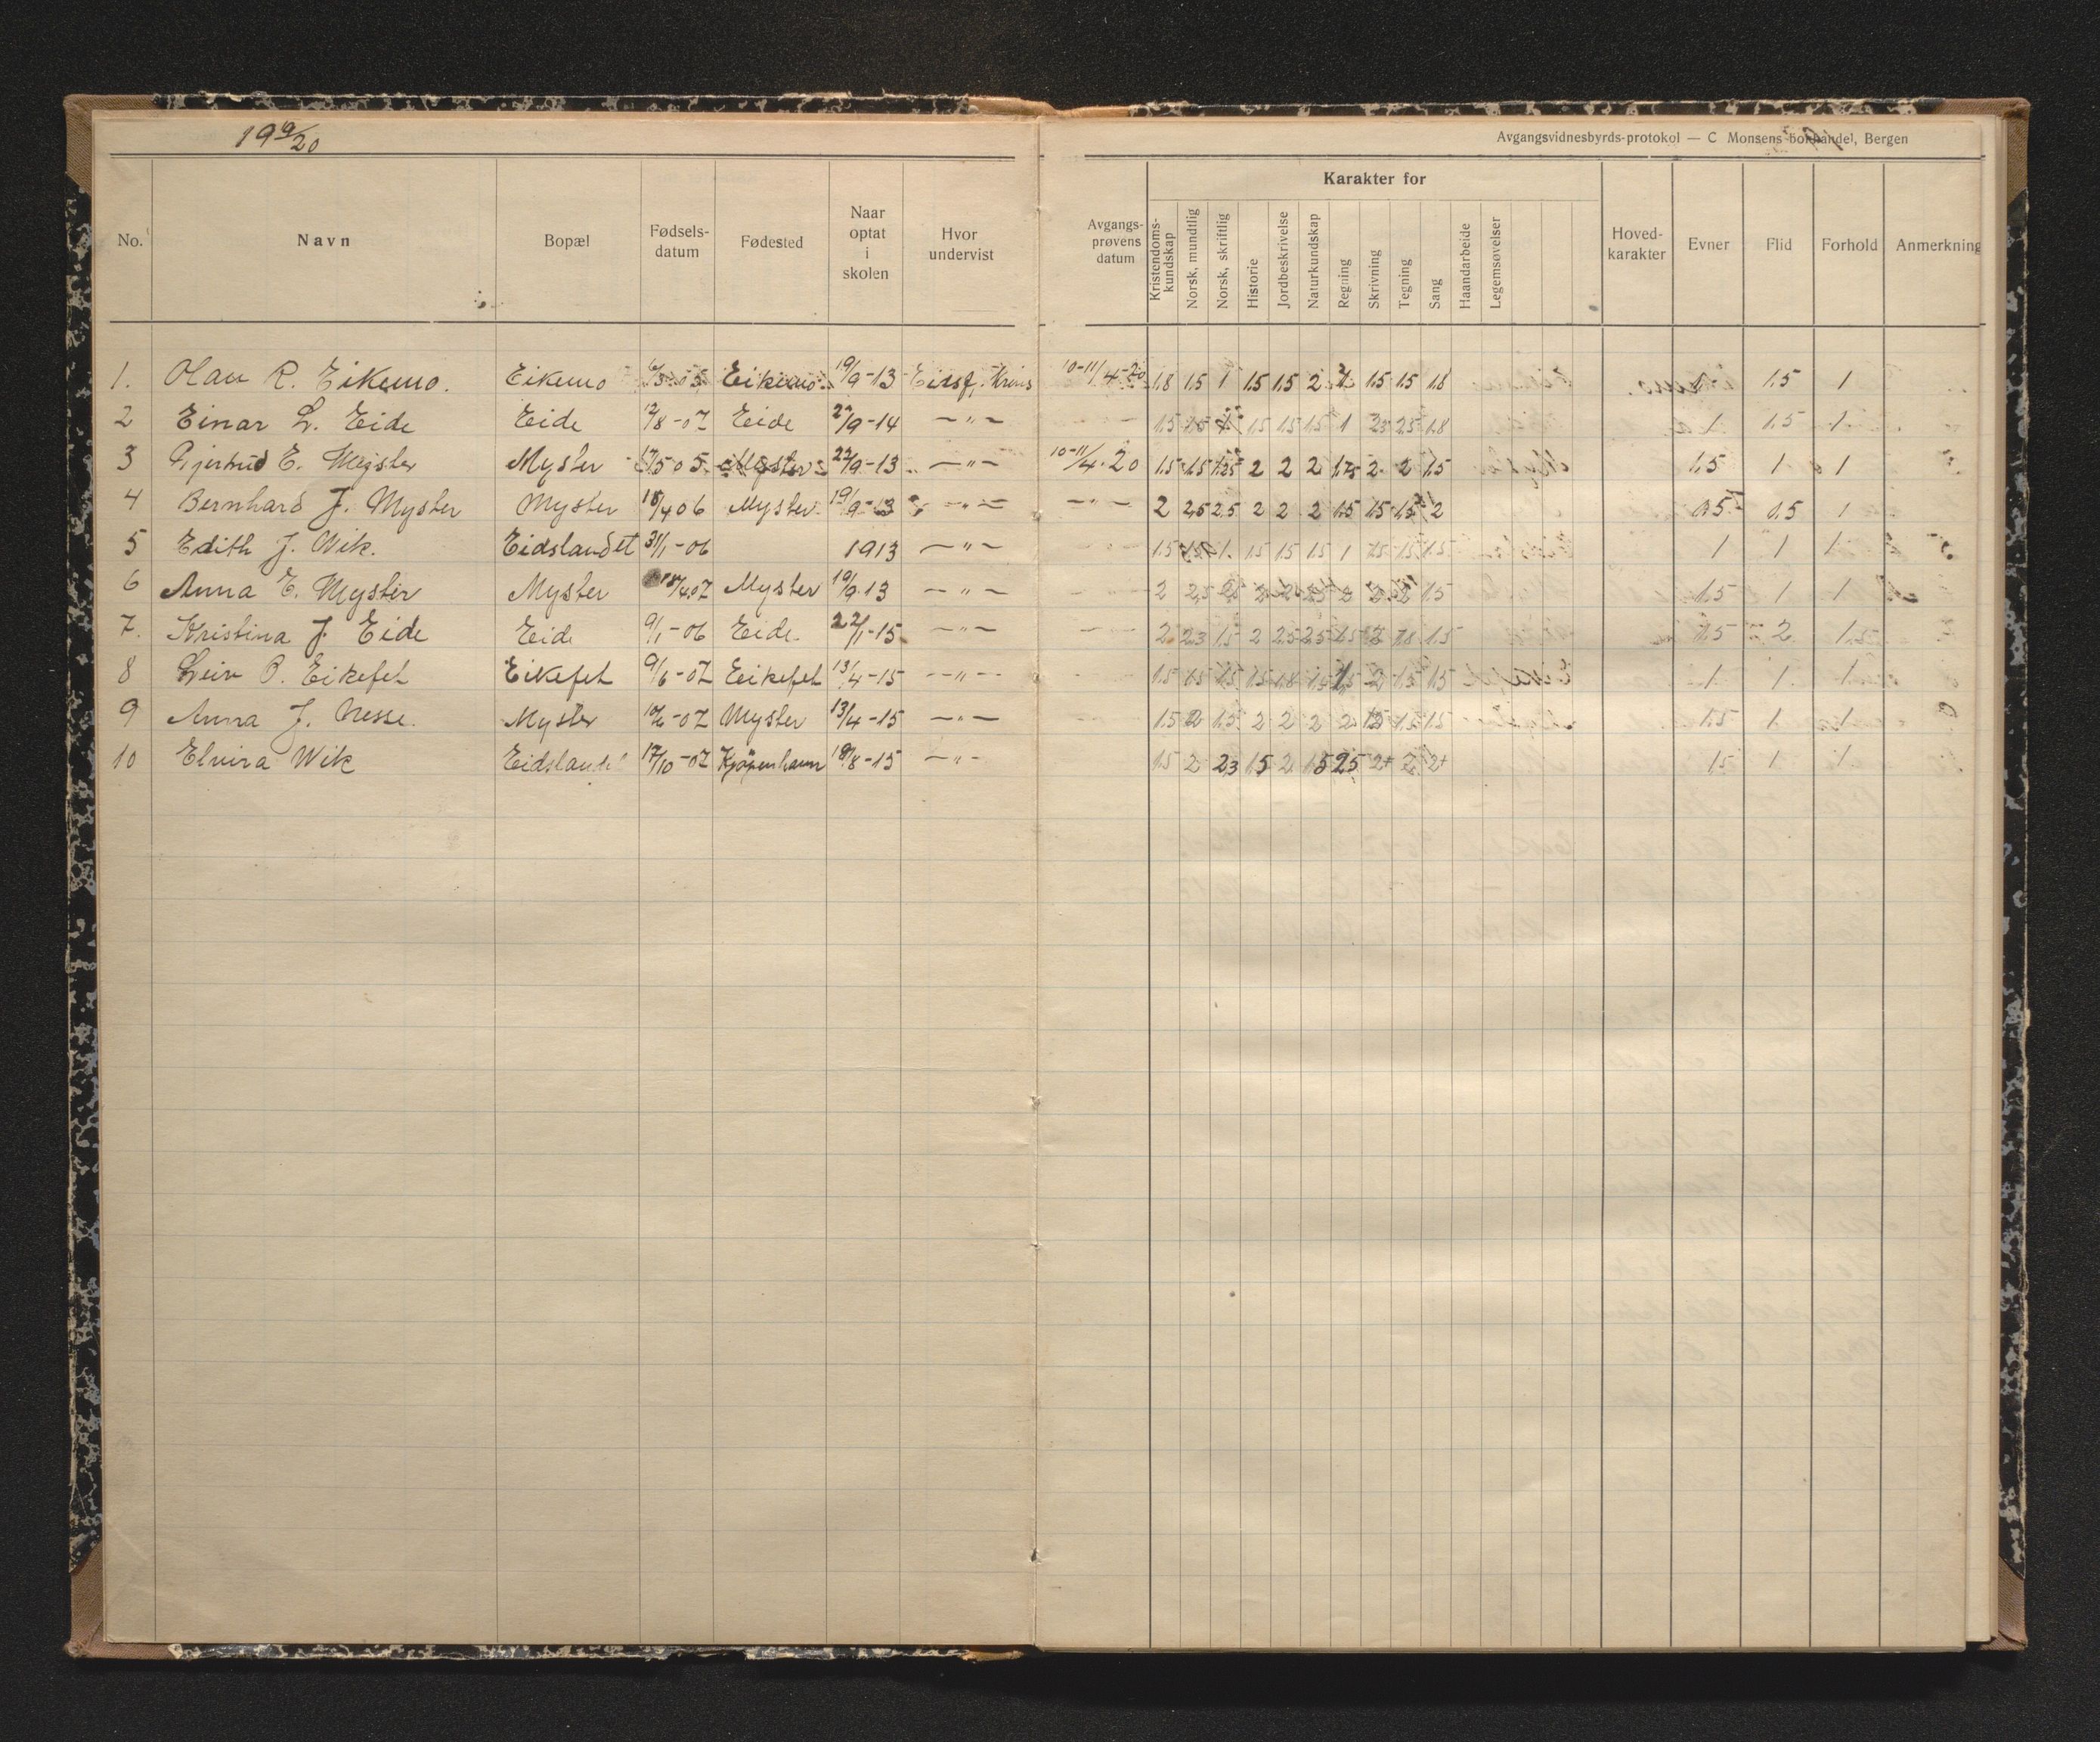 19 19/20
Avgangsvidnesbyrds-protokol — C Monsens bokhandel, Bergen
No. Navn Bopæl Fødsels-datum Fødested Naar optat i skolen Hvor undervist Avgangs-prøvens datum Karakter for Hoved-karakter Evner Flid Forhold Anmerkning
Kristendoms-kundskap Norsk, mundtlig Norsk, skriftlig Historie Jordbeskrivelse Naturkundskap Regning Skrivning Tegning Sang Haandarbeide Legemsøvelser
1. Olav R. Eikemo. Eikemo Eikemo 19/9-13 10-11/4-20 1.8 1.5 1 1.5 1.5 2 1.5 1.5 1.8 1.5 1
2 Einar L. Eide Eide 12/8-07 Eide 22/9-14 —"— 1.5 1.5 1.5 1.5 1.5 1 2.5 1.8 1 1.5 1
3 Gjertrud E. Myster Myster Myster 22/9-13 —"— 10-11/4.20 1.5 1.5 1.25 2 2 2 1.75 2 2 1.5 1.5 1 1
4 Bernhard J. Myster Myster 18/4 06 Myster 19/9-13 —"— —"— 2 2.5 2.5 2 2 2 1.5 1.5 1.5 2 1.5 1
5 Edith J. Wik. Eidslandet 31/1-06 1913 —"— 1.5 1.5 1. 1.5 1.5 1.5 1 1.5 1.5 1.5 1 1 1
6 Anna E. Myster Myster 18/4.07 Myster 19/9.13 —"— 2 2.5 2 2 2 2 1.5 1.5 1 1
7. Kristina J. Eide Eide 9/1-06 Eide. 22/1-15 —"— —"— 2 2.3 1.5 2 2.5 2.5 1.5 2 1.8 1.5 1.5 2 1.5
8 Leiv P. Eikefet Eikefet 9/6-07 Eikefet 13/4-15 —"— 1.5 1.5 1.5 1.5 1.8 1.5 1.5 2 1.5 1.5 1 1 1
9 Anna J. Nesse. Myster 10/6-07 Myster 13/4-15 —"— 1.5 2 1.5 2 2 2 2 1.5 1.5 1.5 1.5 1 1
10 Elvira Wik Eidslandet 17/10-07 Kjøpenhavn 18/8-15 —"— 1.5 2 2.3 1.5 2 1.5 2.5 2+ 2 2+ 1.5 1 1